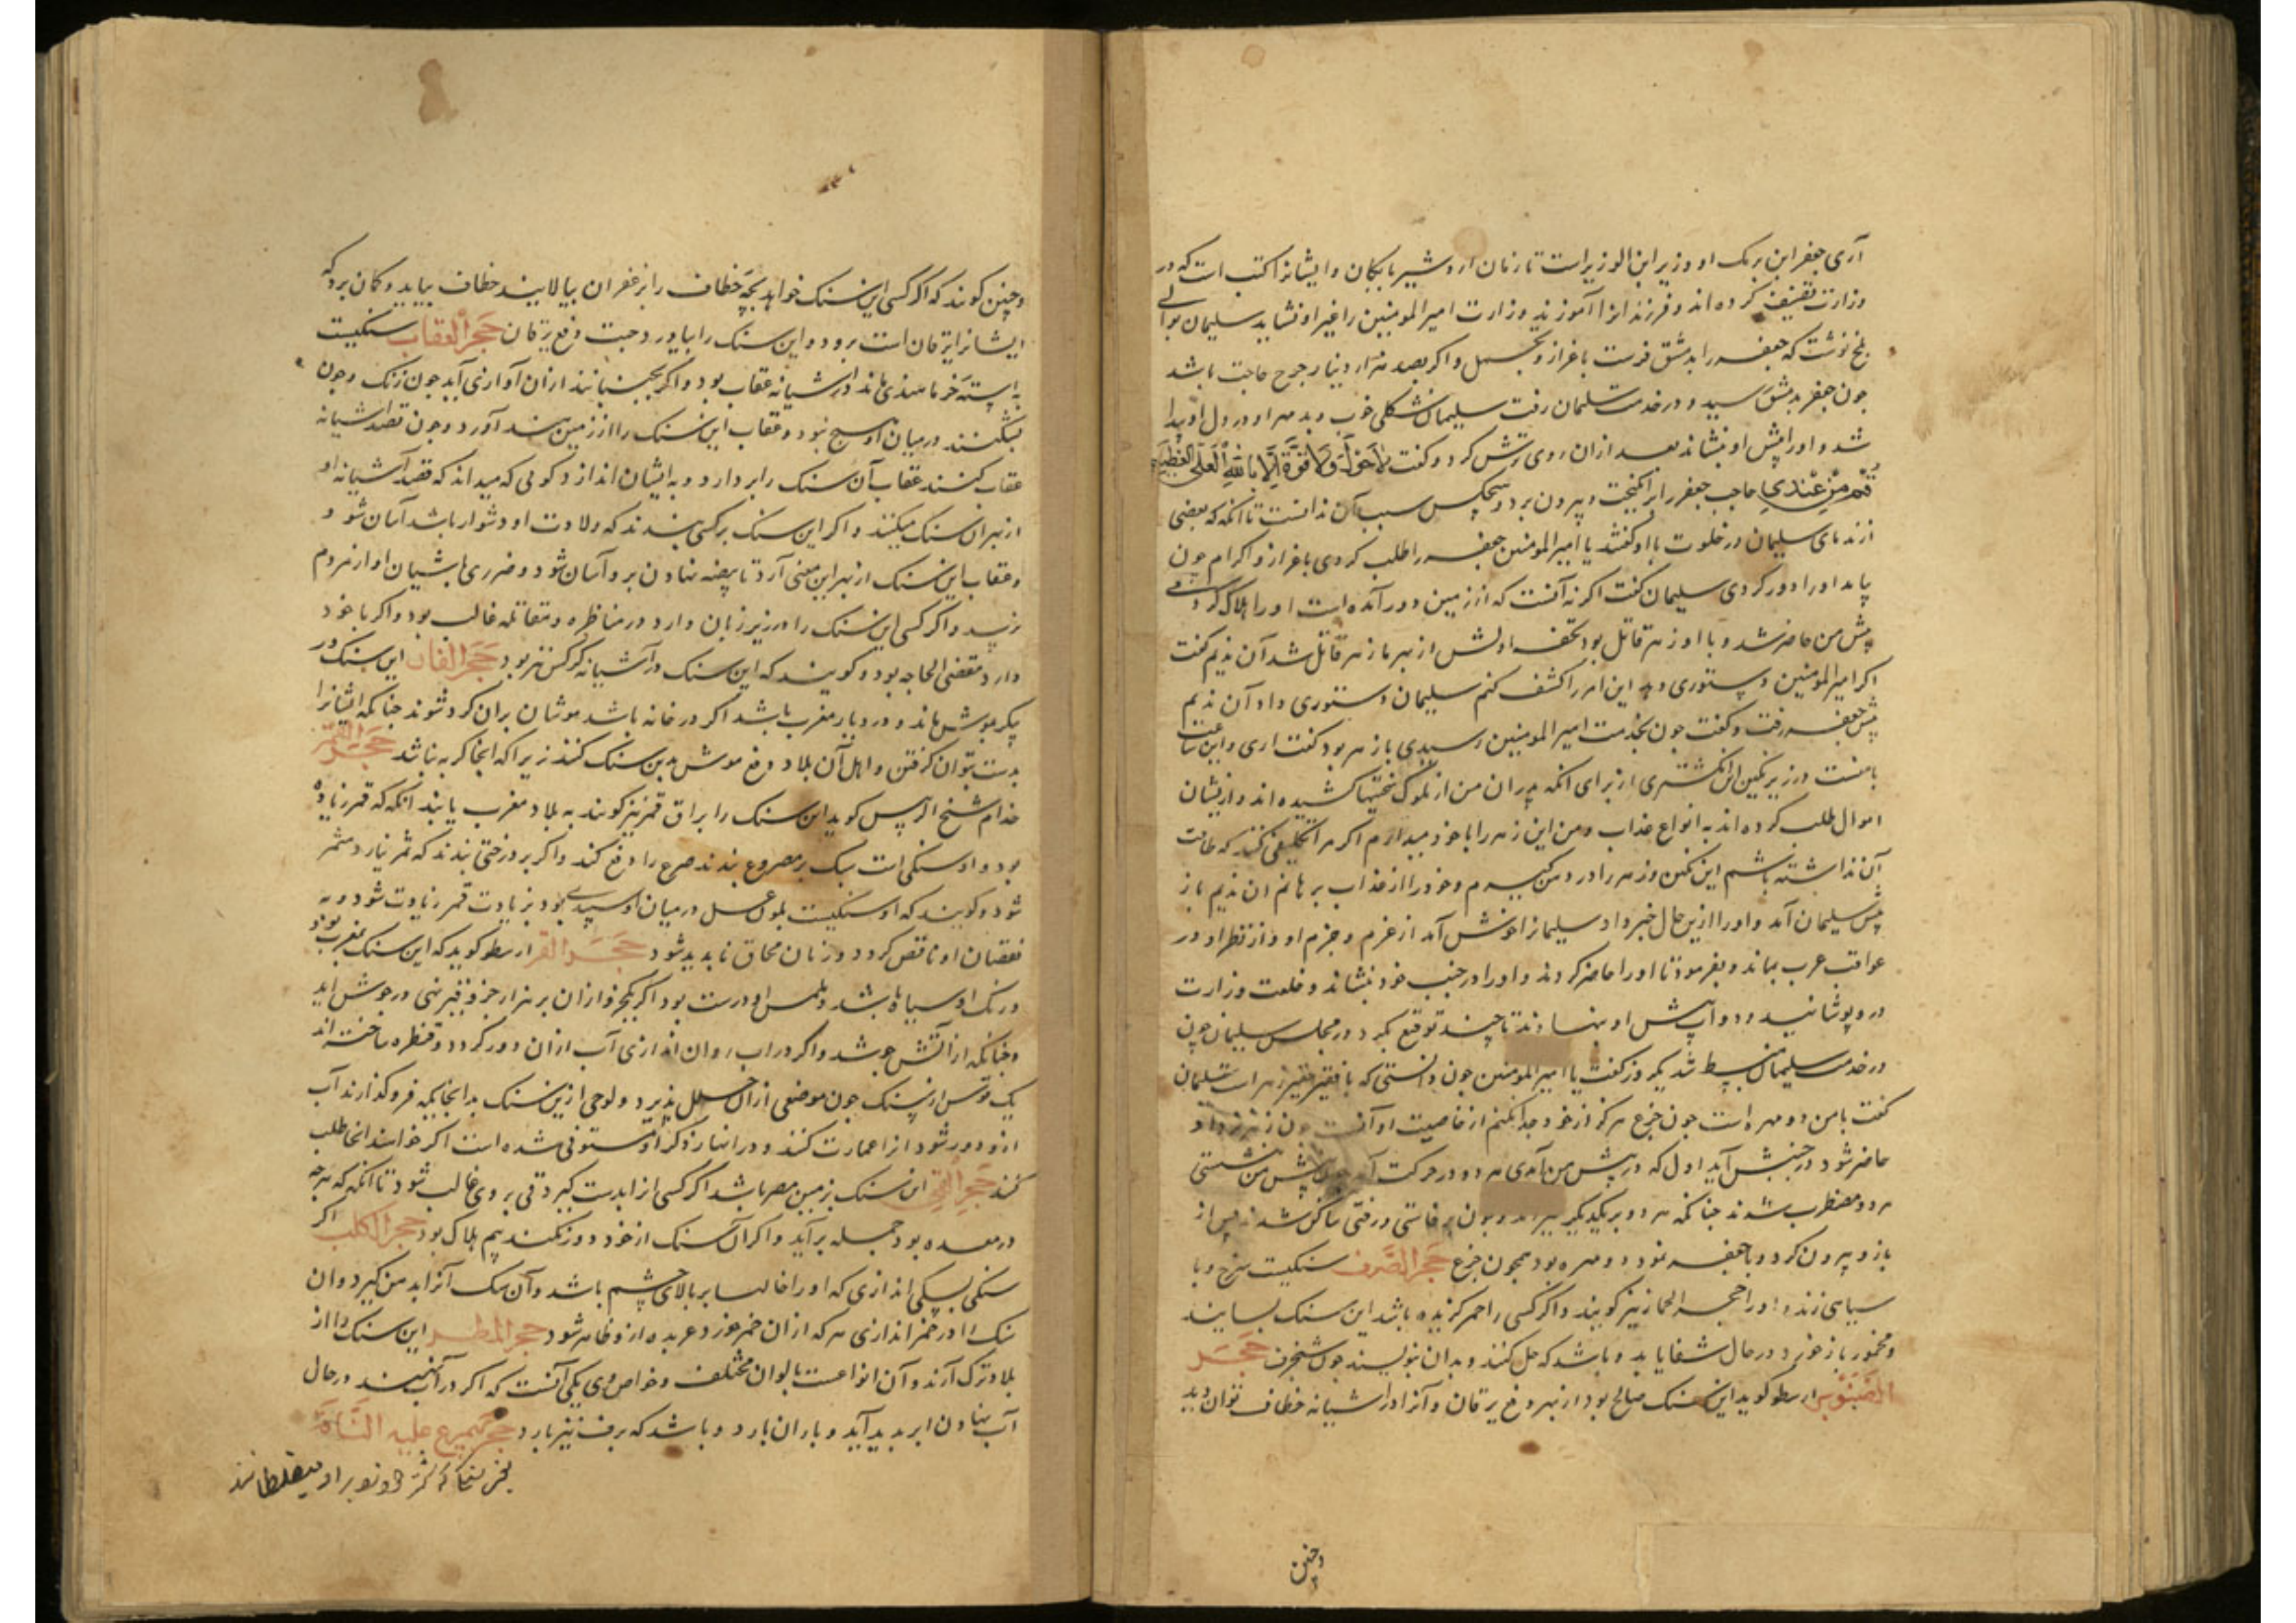 آری جعفر ابن برمک او وزیر ابن الوزیر است تا زمان اردشیر بابکان و ایشانرا کتب است که در
وزارت تصنیف کرده اند و فرزندانرا آموزند وزارت امیرالمومنین را غیر او نشاید سلیمان بوالی
بلخ نوشت که جعفر را بدمشق فرست باعزاز و تجمل و اکر بصد هزار دینار خرج حاجت باشد
جون جعفر بدمشق رسید و در خدمت سلیمان رفت سلیمان شکلی خوب دید مهر او در دل او پیدا
شد و اورا پیش او بنشاند بعد ازان روی ترش کرد و کفت لاحول ولا قوة الا بالله العلی العظیم
قم من عندی حاجب جعفر را برانکیخت و بیرون برد و هیچکس سبب آن ندانست تا انکه که بعضی
از ندمای سلیمان در خلوت با او کفتند یا امیرالمومنین جعفر را طلب کردی باعزاز و اکرام جون
بیامد اورا دور کردی سلیمان کفت اکر نه آنست که از زمین دور آمده است اورا هلاک کردمی
پیش من حاضر شد و با او زهر قاتل بود تحفه اولش از بهر ما زهر قاتل شد آن ندیم کفت
اکر امیرالمومنین دستوری دهد این امر را کشف کنم سلیمان دستوری داد آن ندیم
پیش جعفر رفت و کفت جون بخدمت امیرالمومنین رسیدی با تو زهر بود کفت اری و این ساعت
با منست در زیر نکین این انکشتری از برای انکه پدران من از ملوک سختیها کشیده اند و ازیشان
اموال طلب کرده اند به انواع عذاب و من این زهر را با خود میدارم اکر مرا تکلیفی کنند که طاقت
آن نداشته باشم این نکین و زهر را در دهن کیرم و خود را از عذاب برهانم ان ندیم باز
پیش سلیمان آمد و اورا ازین حال خبر داد سلیمانرا خوش آمد از عزم و حزم او و از نظر او در
عواقب عرب بماند و بفرمود تا اورا حاضر کردند و اورا در جنب خود بنشاند و خلعت وزارت
درو پوشانید و دوات پیش او بنهادند تا چند توقیع بکرد در مجلس سلیمان چون
در خدمت سلیمان منبسط شد یکروز کفت یا امیرالمومنین چون دانستی که با فقیر حقیر زهر است سلیمان
کفت با من دو مهره است جون جزع هرکز از خود جدا نکنم از خاصیت او آنست جون زهر نزد او
حاضر شود در جنبش آید اول که در پیش من آمدی هر دو در حرکت آمد جون پیش من نشستی
هر دو مضطرب شدند جنانکه هر دو بر یکدیکر میزدند و جون برخاستی و رفتی ساکن شدند پس از
بازو بیرون کرد و با جعفر نمود دو مهره بود همجون جزع حجر الصرف سنکیست سرخ و با
سیاهی زند و اورا حجر الخمار نیز کویند و اکر کسی را خمر کزیده باشد این سنک بسایند
و مخمور باز خورد در حال شفا یابد و باشد که حل کنند و بدان نویسند جون شنجرف حجر
الصنوبر ارسطو کوید این سنک صالح بود از بهر دفع یرقان و آنرا در آشیانه خطاف توان دید
وچنین
وچنین کویند که اکر کسی این سنک خواهد بچه خطاف را بزعفران بیالایند خطاف بیاید و کمان برد که
ایشانرا یرقان است برود و این سنک را بیاورد جهت دفع یرقان حجر العقاب سنکیست
به استه خرما هندی ماند در آشیانه عقاب بود و اکر بجنبانند ازان آوازی آید جون زنک و جون
بشکنند در میان او هیچ نبود و عقاب این سنک را از زمین هند آورد و جون قصد آشیانه
عقاب کنند عقاب آن سنک را بردارد و به ایشان اندازد کوئی که میداند که قصد آشیانه او
از بهر ان سنک میکنند و اکر این سنک بر کسی بندند که ولادت او دشوار باشد آسان شود و
و عقاب این سنک از بهر این معنی آرد تا بیضه نهادن برو آسان شود و ضرری بآشیان او از مردم
نرسد و اکر کسی این سنک را در زیر زبان دارد در مناظره و مقاتله غالب بود و اکر با خود
دارد مقضی الحاجه بود و کویند که این سنک در آشیانه کرکس نیز بود حجر الفار این سنک در
پیکر موش ماند و در دیار مغرب باشد اکر در خانه باشد موشان بران کرد شوند جنانکه ایشانرا
بدست بتوان کرفتن و اهل آن بلاد دفع موش بدین سنک کنند زیرا که انجا کربه نباشد حجر القمر
خدام شیخ الرئیس کوید این سنک را براق قمر نیز کویند به بلاد مغرب یابند انکه که قمر زیاده
بود و او سنکی است سبک بر مصروع بندند صرع را دفع کند و اکر بر درختی بندند که ثمر نیارد مثمر
شود و کویند که او سنکیست بلون عسل در میان او سپیدی بود بزیادت قمر زیادت شود و به
نقصان او ناقص کردد و زمان محاق ناپدید شود حجر القر ارسطو کوید که این سنک بمغرب بود
و رنک او سیاه باشد و ملمس او درشت بود اکر یکجزو ازان بر هزار جزو قیر نهی در جوش اید
و جنانکه از آتش جوشد و اکر در اب روان اندازی آب ازان دور کردد و قنطره ساخته اند
یک قوس از سنک جون موضعی ازان خلل پذیرد و لوحی ازین سنک بدانجا یکه فرو کذارند آب
ازو دور شود انرا عمارت کنند و در انهار ذکر او مستوفی شده است اکر خواهند انجا طلب
کنند حجر القی این سنک بزمین مصر باشد اکر کسی انرا بدست کیرد قی بر وی غالب شود تا انکه که هرجه
در معده بود جمله برآید و اکر آن سنک از خود دور نکند بیم هلاک بود حجر الکلب اکر
سنکی بسکی اندازی که اورا خالها بر بالای چشم باشد و آن سک آنرا بدهن کیرد و ان
سنک را در خمر اندازی هر که ازان خمر خورد عربده ازو ظاهر شود حجر المطر این سنک را از
بلاد ترک آرند و آن انواعست بالوان مختلف و خواص وی یکی آنست که اکر در آب نهند در حال
آب نهادن ابر بدید آید و باران بارد و باشد که برف نیز بارد حجر یتمرغ علیه الناقة